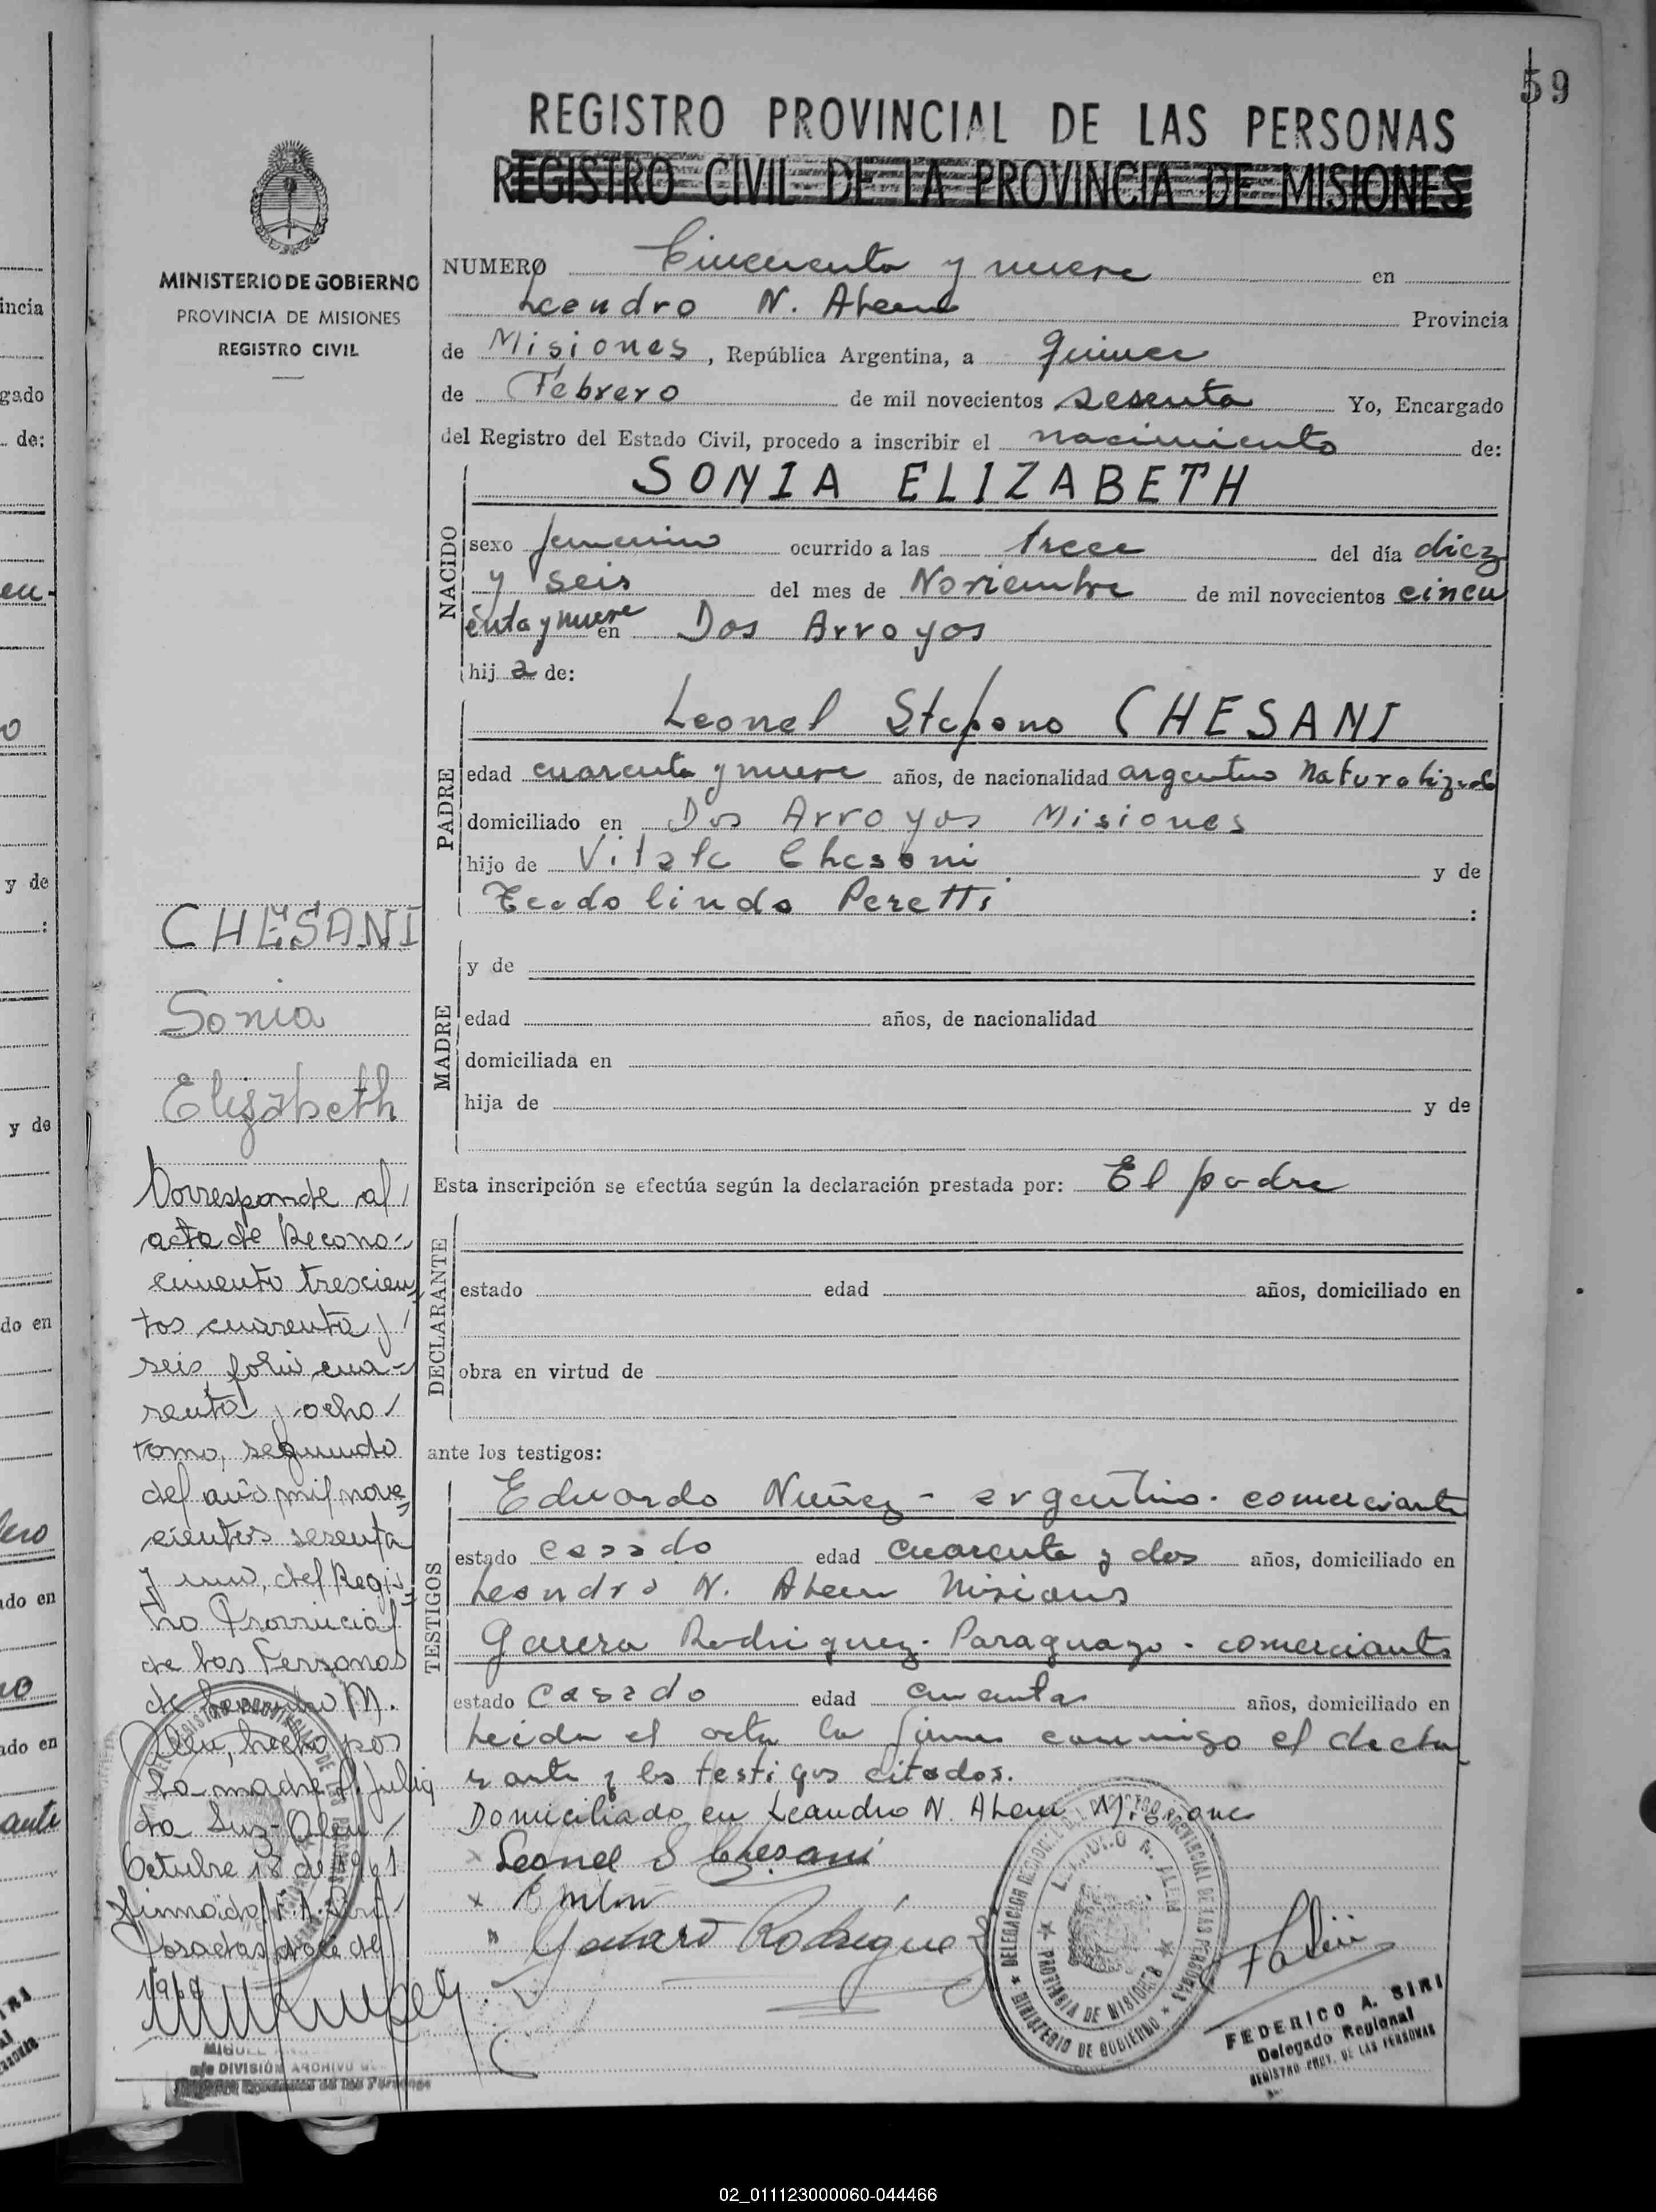 59
REGISTRO PROVINCIAL DE LAS PERSONAS
REGISTRO CIVIL DE LA PROVINCIA DE MISIONES
MINISTERIO DE GOBIERNO
PROVINCIA DE MISIONES
REGISTRO CIVIL
NUMERO Cincuenta y nueve en
Leandro N. Alem Provincia
de Misiones, República Argentina, a quince
de Febrero de mil novecientos sesenta Yo, Encargado
del Registro del Estado Civil, procedo a inscribir el nacimiento de:
NACIDO
SONIA ELIZABETH
sexo femenino ocurrido a las trece del día diez
y seis del mes de Noviembre de mil novecientos cincu
enta y nueve en Dos Arroyos
hija de:
PADRE
Leonel Stefano CHESANI
edad cuarenta y nueve años, de nacionalidad argentino Naturalizado
domiciliado en Dos Arroyos Misiones
hijo de Vitale Chesani y de
Teodolinda Peretti :
MADRE
y de
edad años, de nacionalidad
domiciliada en
hija de y de
Esta inscripción se efectúa según la declaración prestada por: El padre
DECLARANTE
estado edad años, domiciliado en
obra en virtud de
ante los testigos:
TESTIGOS
Eduardo Nuñez - argentino - comerciante
estado casado edad cuarenta y dos años, domiciliado en
Leandro N. Alem Misiones
Rodriguez - Paraguayo - comerciante
estado casado edad años, domiciliado en
Leida el acta la firma conmigo el decla
rante y los testigos citados.
Domiciliado en Leandro N. Alem Misiones
Leonel S Chesani
Rodrigue
CHESANI
Sonia
Elizabeth
Corresponde al
acta de Recono-
cimiento trescien
tos cuarenta y
seis, folio cua-
renta y ocho
tomo, segundo
del año mil nove
cientos sesenta
y uno, del Regis
tro Provincial
de las Personas
de Leandro N.
Alem, hecho por
la madre
da Luz-Alem
Octubre 18 de 1961
Posadas
DELEGACION REGIONAL DEL REGISTRO PROVINCIAL DE LAS PERSONAS
LEANDRO N. ALEM
PROVINCIA DE MISIONES
MINISTERIO DE GOBIERNO
FEDERICO A. SIRI
Delegado Regional
REGISTRO PROV. DE LAS PERSONAS
DIVISIÓN ARCHIVO
02_011123000060-044466